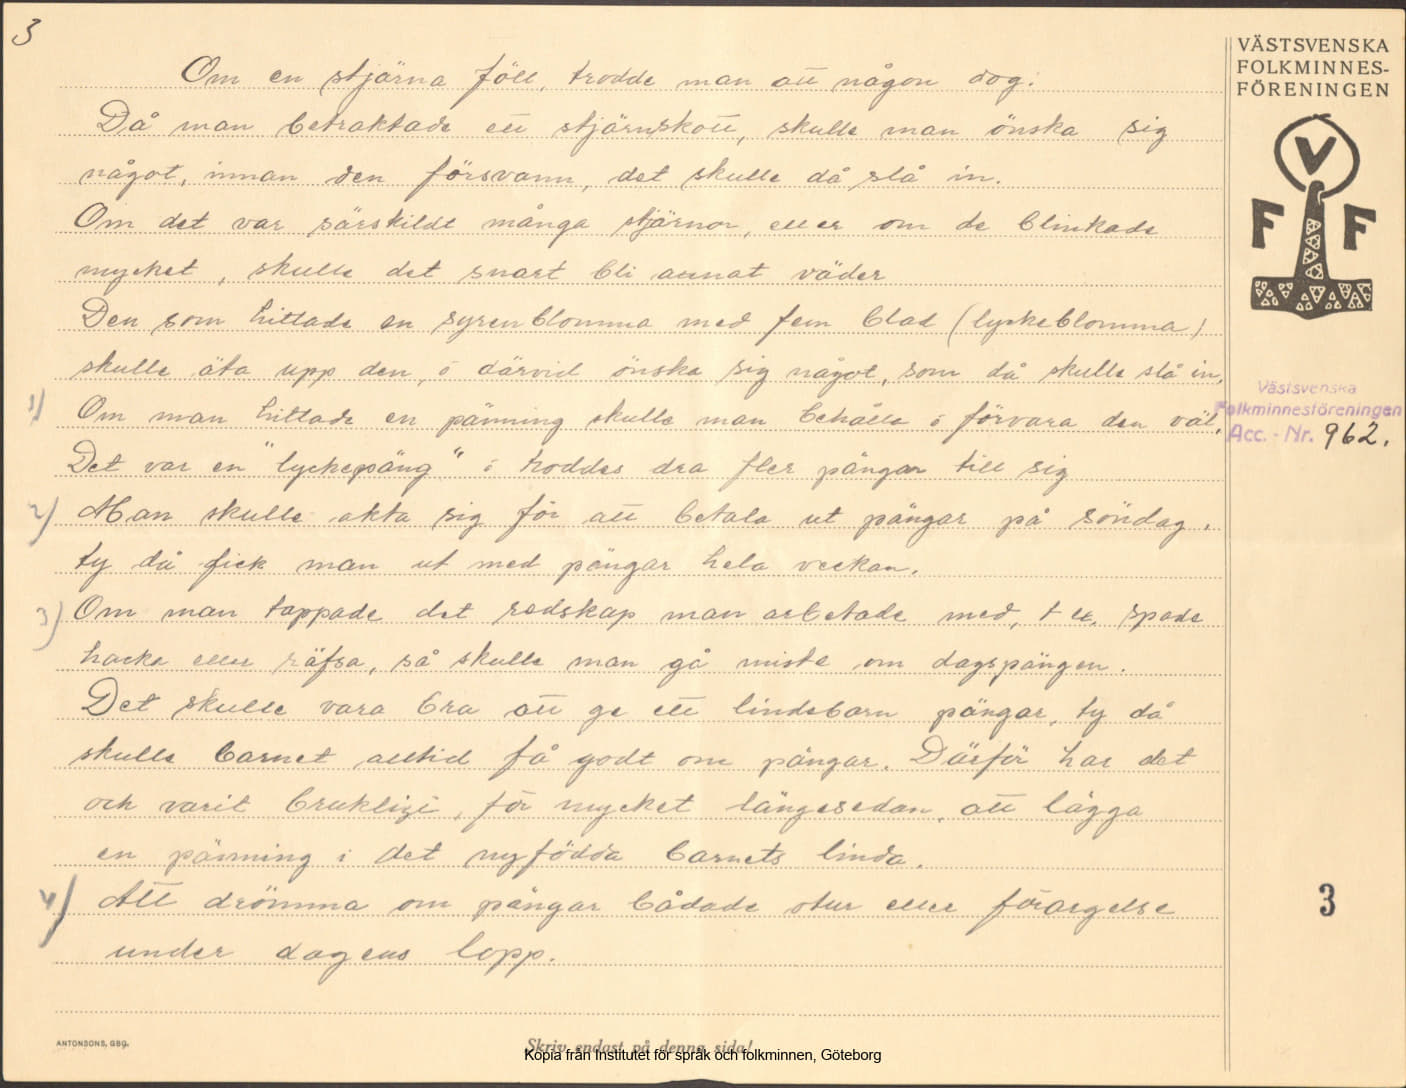 3
Om en stjärna föll, trodde man att någon dog.
Då man betraktade ett stjärnskott, skulle man önska sig
något, innan den försvann, det skulle då slå in.
Om det var särskildt många stjärnor, eller om de blinkade
mycket, skulle det snart bli annat väder
Den som hittade en syrenblomma med fem blad (lyckeblomma)
skulle äta upp den, ö därvid önska sig något, som då skulle slå in.
1) Om man hittade en pänning skulle man behålla ö förvara den väl,
Det var en "lyckepäng" ö troddes dra fler pängar till sig
2) Man skulle akta sig för att betala ut pängar på söndag,
ty då fick man ut med pängar hela veckan.
3) Om man tappade det redskap man arbetade med, t ex. spade
hacke eller räfsa, så skulle man gå miste om dagspängen.
Det skulle vara bra att ge ett lindebarn pängar, ty då
skulle barnet alltid få godt om pängar. Därför har det
och varit brukligt, för mycket längesedan, att lägga
en pänning i det nyfödda barnets linda.
4) Att drömma om pängar bådade otur eller förargelse
under dagens lopp.
VÄSTSVENSKA
FOLKMINNES-
FÖRENINGEN
V
F F
Västsvenska
Folkminnesföreningen
Acc. - Nr. 962.
3
ANTONSONS, GBG.
Skriv endast på denna sida!
Kopia från Institutet för språk och folkminnen, Göteborg